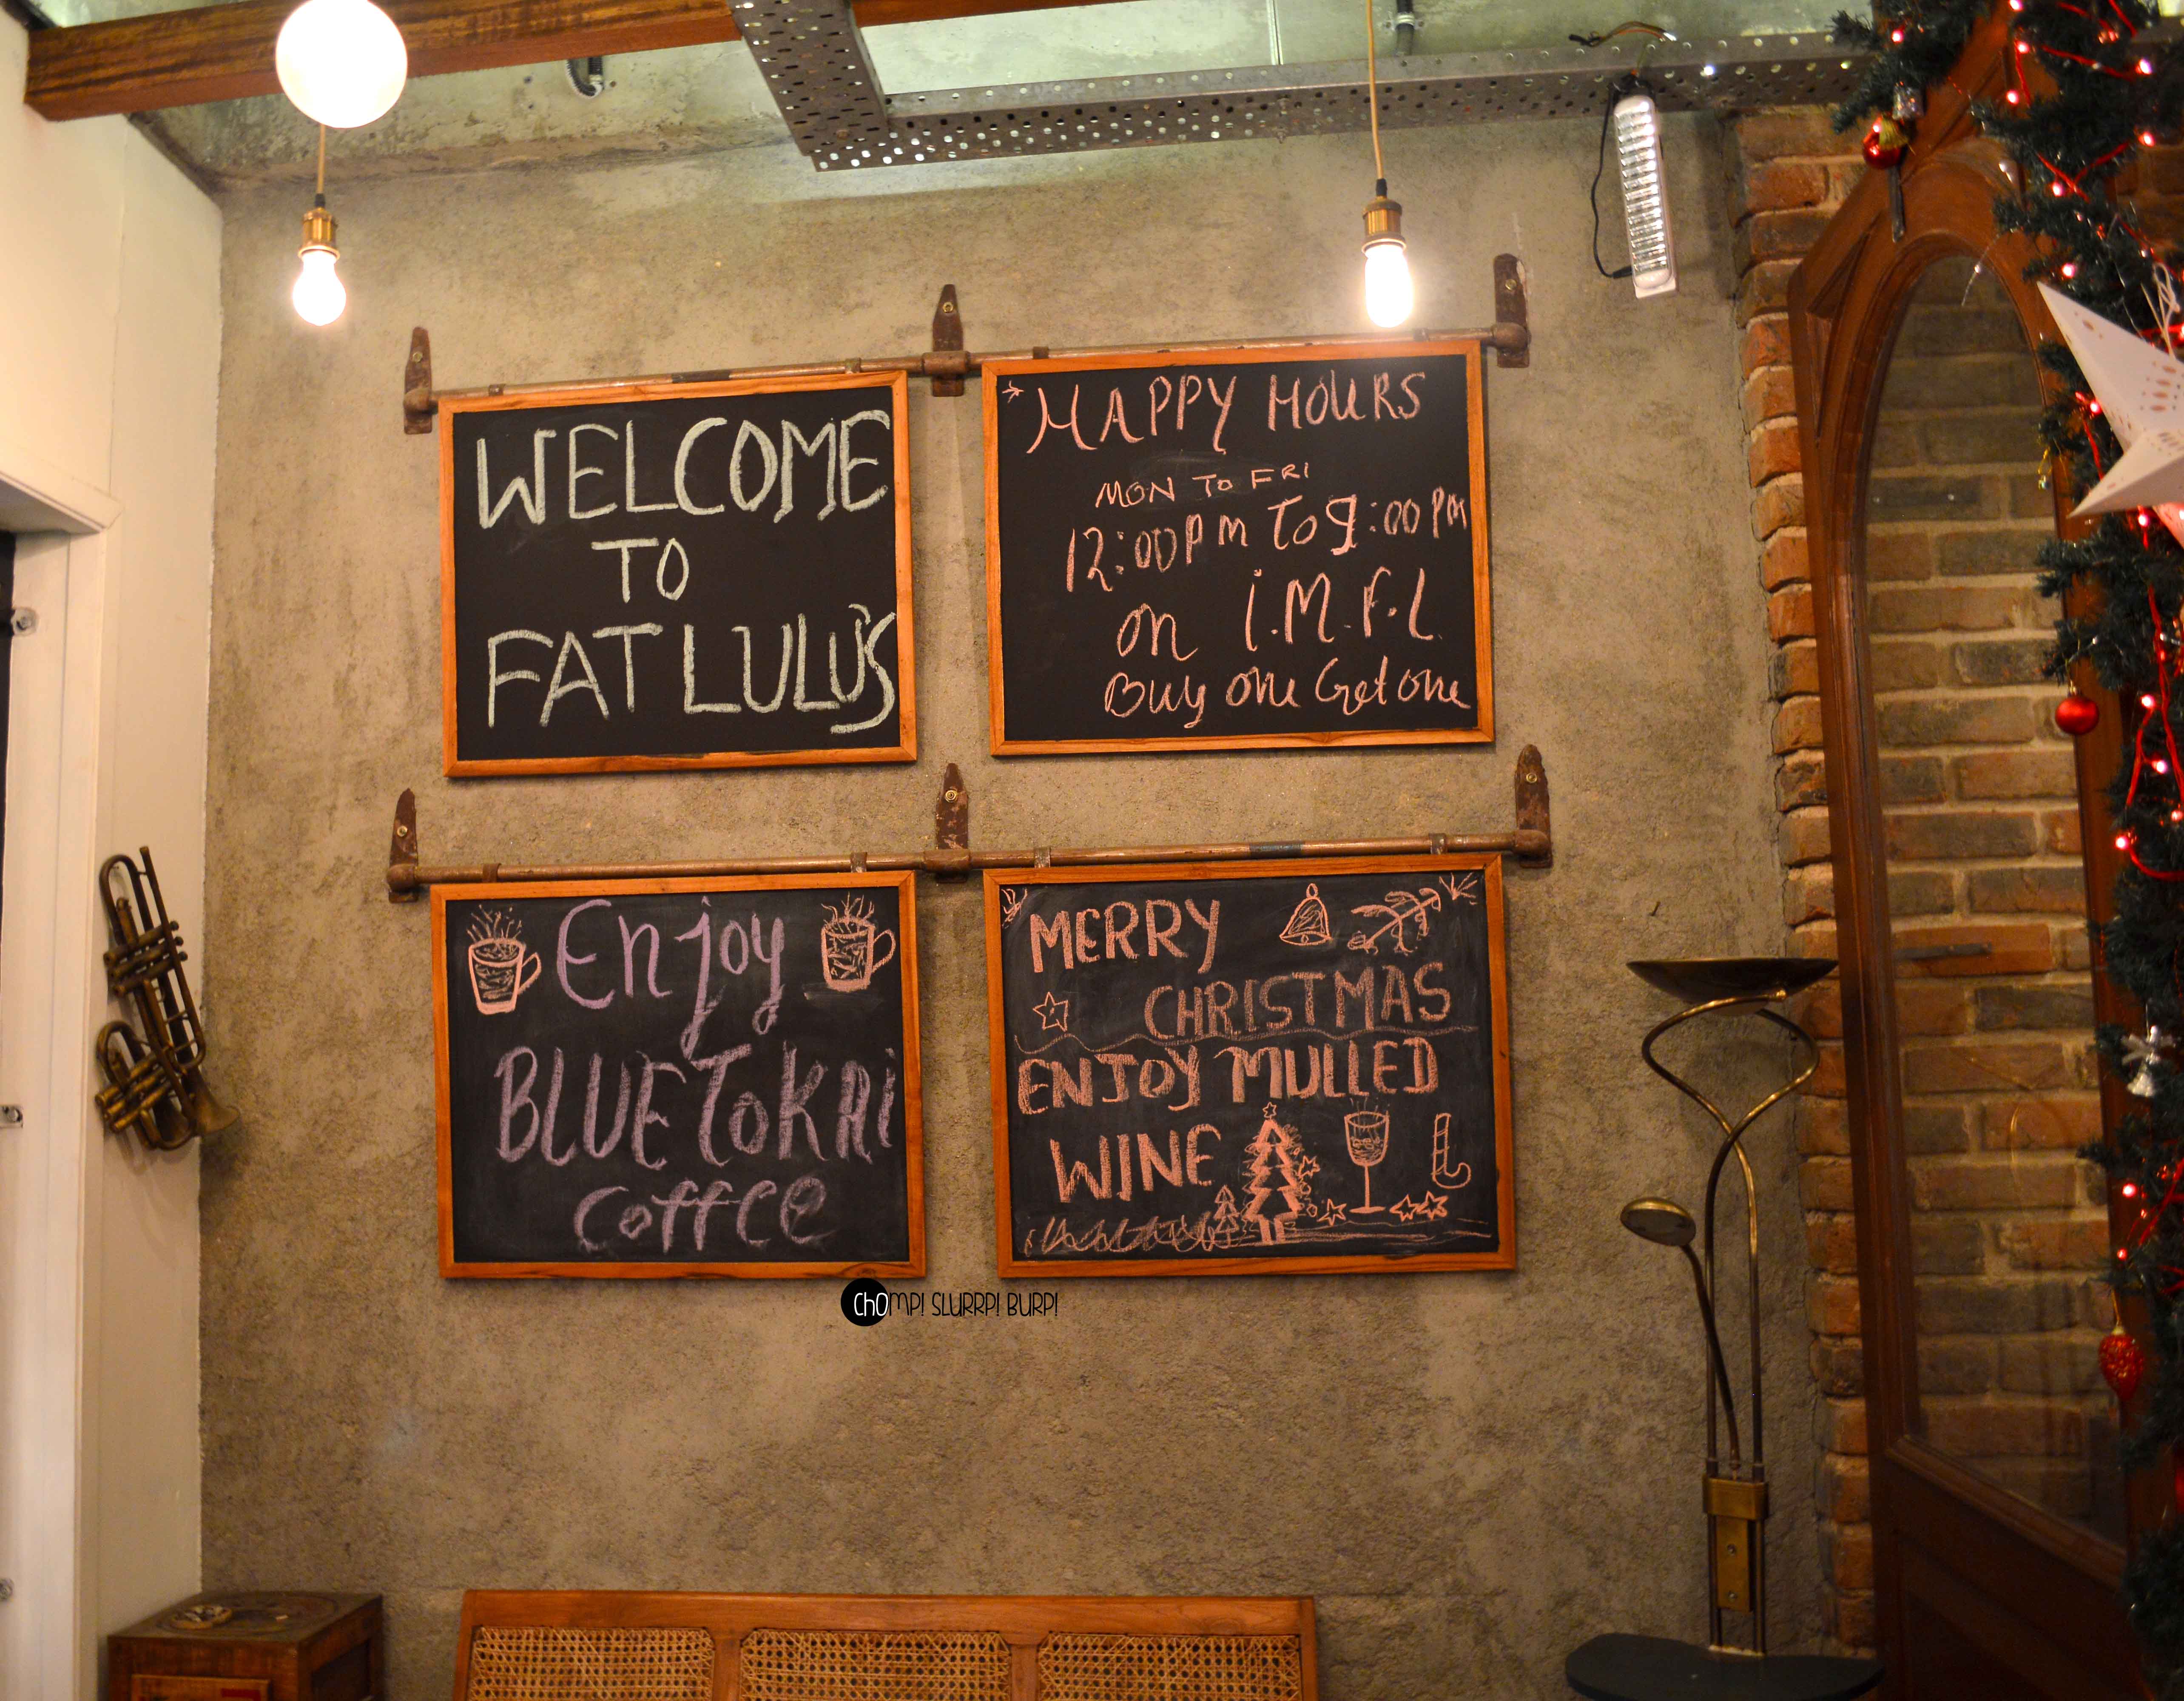 WELCOME
TO
FAT LULU'S
*HAPPY HOURS
MON TO FRI
12:00PM To 9:00 PM
on I.M.F.L.
Buy one Get one
Enjoy
BLUE ToKAi
coffee
MERRY
CHRISTMAS
ENJOY MULLED
WINE
ChOMP! SLURRP! BURP!